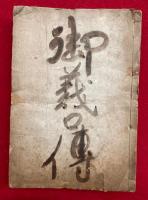 御義口傳